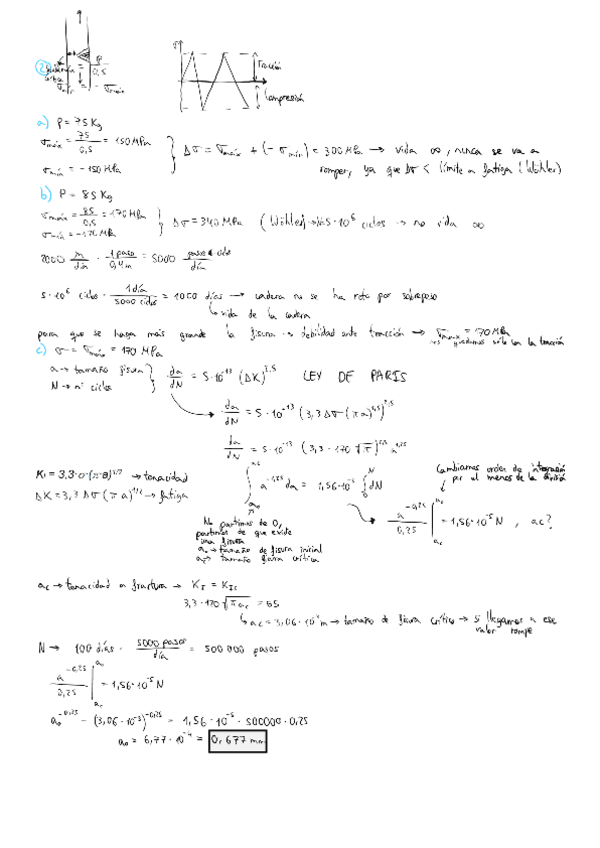 P
Tracción
Compresión
2
P
0,5
a) P = 75 Kg
σmáx = 75/0,5 = 150 MPa
σmín = -150 MPa
Δσ = σmáx + (-σmín) = 300 MPa → vida ∞, nunca se va a
romper, ya que Δσ < límite a fatiga (Wöhler)
b) P = 85 Kg
σmáx = 85/0,5 = 170 MPa
σmín = -170 MPa
Δσ = 340 MPa (Wöhler) → 5·10⁶ ciclos → no vida ∞
2000 m/día · 1 paso/0,4m = 5000 pasos ó ciclo/día
5·10⁶ ciclos · 1 día/5000 ciclos = 1000 días → cadera no se ha roto por sobrepeso
↳ vida de la cadera
para que se haga más grande la fisura → debilidad ante tracción → σmáx = 170 MPa
nos quedamos sólo con la tracción
c) σ = σmáx = 170 MPa
a → tamaño fisura
N → nº ciclos
da/dN = 5·10⁻¹³ (ΔK)^2,5 LEY DE PARIS
da/dN = 5·10⁻¹³ (3,3 Δσ (πa)^0,5)^2,5
da/dN = 5·10⁻¹³ (3,3·170 √π)^2,5 a^1,25
K₁ = 3,3·σ·(π·a)^1/2 → tenacidad
ΔK = 3,3 Δσ (πa)^1/2 → fatiga
∫ a^-1,25 da = 1,56·10⁻⁵ ∫ dN
Cambiamos orden de integración
por el menos de la
a^-0,25/0,25 | = 1,56·10⁻⁵ N , ac?
No partimos de 0,
partimos de que existe
una fisura
a₀ → tamaño de fisura inicial
ac → tamaño fisura crítica
ac → tenacidad a fractura → KI = KIc
3,3·170 √πac = 65
↳ ac = 3,06·10⁻³ m → tamaño de fisura crítico → si llegamos a ese
valor rompe
N → 100 días · 5000 pasos/día = 500 000 pasos
a^-0,25/0,25 | = 1,56·10⁻⁵ N
a₀^-0,25 - (3,06·10⁻³)^-0,25 = 1,56·10⁻⁵ · 500000 · 0,25
a₀ = 6,77·10⁻⁴ = 0,677 mm